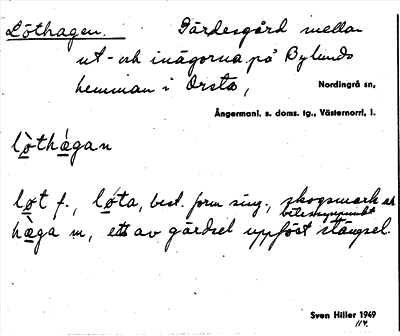 Löthagen. Gärdesgård mellan
ut- och inägorna på Bylunds
hemman i Orsta, Nordingrå sn,
Ångermanl. s. doms. tg., Västernorrl. l.
lòthágan
lọt f., lọ́ta, best. form sing., skogsmark ur
betessynpunkt
hàga m, ett av gärdsel uppfört stängsel.
Sven Hiller 1949
114.